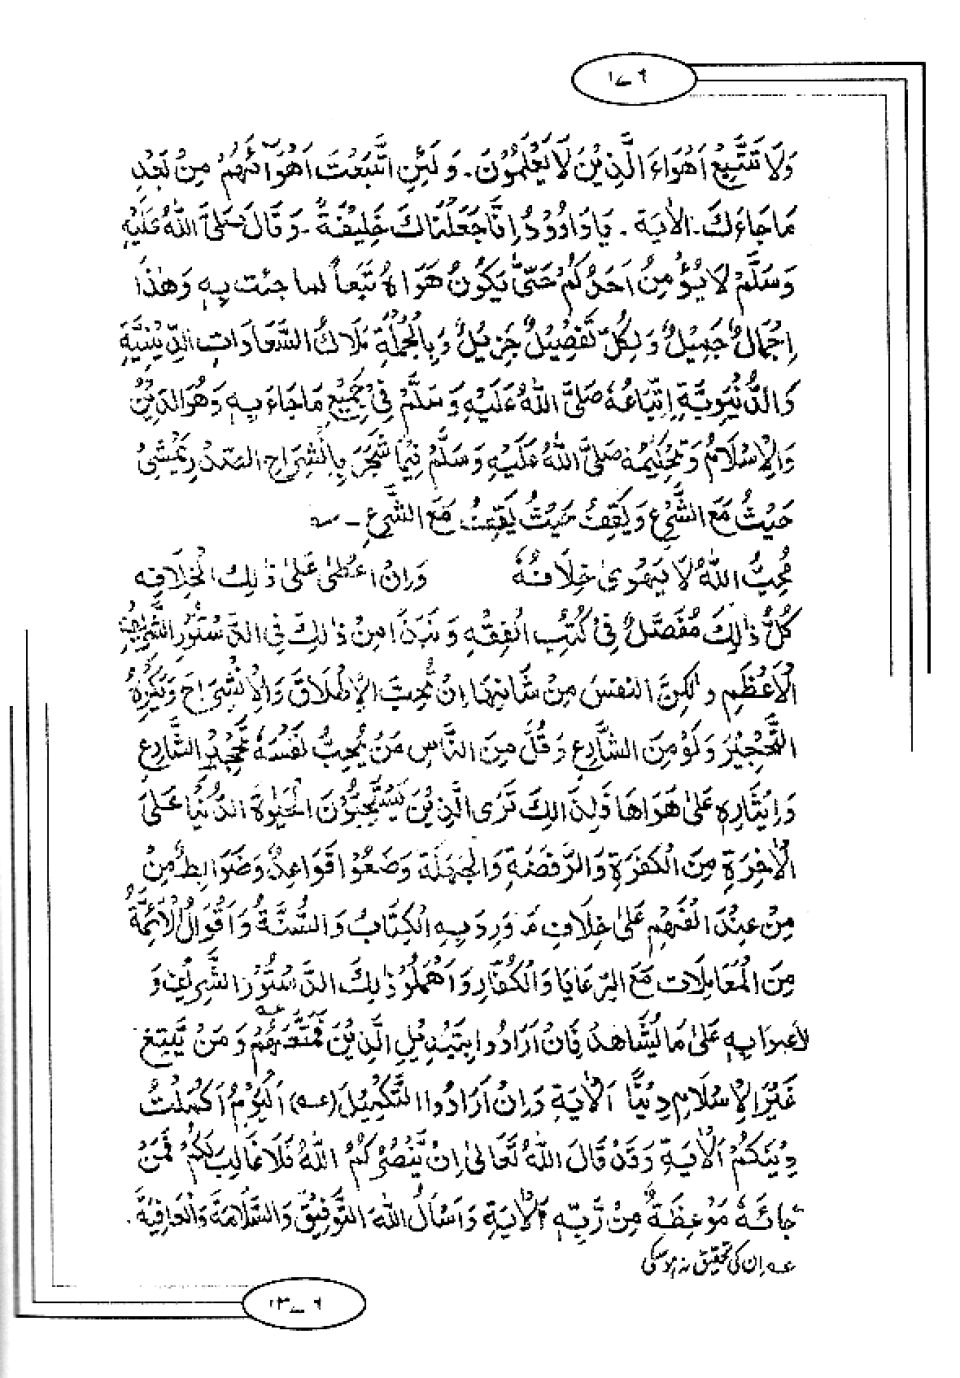 ١ــ٩
وَلَا تَتَّبِعْ اَهْوَاءَ الَّذِيْنَ لَا يَعْلَمُوْنَ۔ وَلَئِنِ اتَّبَعْتَ اَهْوَآئَهُمْ مِنْ بَعْدِ
مَاجَاءَكَ۔ الْاٰيَة ۔ يَادَاوٗدُ اِنَّا جَعَلْنَاكَ خَلِيْفَةً ۔ وَقَالَ صَلَّى اللهُ عَلَيْهِ
وَسَلَّمْ لَا يُؤْمِنُ اَحَدُكُمْ حَتّٰى يَكُوْنُ هَوَاهُ تَبَعاً لما جئت بِهٖ وَهٰذَا
اِجْمَالٌ جَمِيْلٌ وَلِكُلٍّ تَفْصِيْلٌ جَزِيْلٌ وَبِالْجُمْلَةِ مَلَاكُ السَّعَادَاتِ الدِّيْنِيَّةِ
وَالدُّنْيَوِيَّةِ اِتِّبَاعُهٗ صَلَّى اللهُ عَلَيْهِ وَسَلَّمْ فِيْ جَمِيْعِ مَاجَاءَ بِهٖ وَهُوَ الدِّيْنُ
وَالْاِسْلَامُ وَتَحْكِيْمُهٗ صَلَّى اللهُ عَلَيْهِ وَسَلَّمْ فِيْمَا شَجَرَ بِانْشِرَاحِ الصَّدْرِ يَمْشِيْ
حَيْثُ مَعَ الشَّرْعِ وَيَقِفُ حَيْثُ يَقِفُ مَعَ الشَّرْعِ ــ
مُحِبُّ اللهُ لَا يَهْوِىٰ خِلَافَهٗ وَرَانْ اَعْطٰى عَلىٰ ذٰلِكَ الْخِلَافِهٖ
كُلُّ ذٰلِكَ مُفَصَّلٌ فِيْ كُتُبِ الْفِقْهِ وَنَبَذَا مِنْ ذٰلِكَ فِى الدَّسْتُوْرِ
الْاَعْظَمِ وَلٰكِنَّ النفسَ مِنْ شَانِهَا اَنْ تُحِبَّ الْاِطْلَاقَ وَالْاِنْشِرَاحَ وَتَكْرَهُ
التَّحْجِيْرَ وَلَوْ مِنَ الشَّارِعِ وَقَلَّ مِنَ النَّاسِ مَنْ يُحِبُّ لِنَفْسَهٗ تَحْجِيْرَ الشَّارِعِ
وَاِيْثَارِهٖ عَلىٰ هَوَاهَا وَلِذَالِكَ تَرَى الَّذِيْنَ يَسْتَحِبُّوْنَ الْحَيٰوةَ الدُّنْيَا عَلَى
الْاٰخِرَةِ مِنَ الْكَفَرَةِ وَالرَّفَضَةِ وَالْجَهَلَةِ وَضَعُوْا قَوَاعِدُ وَضَوَابِطُ مِنْ
مِنْ عِنْدَ انفُسِهِمْ عَلىٰ خِلَافِ مَا وَرِدَ بِهِ الْكِتَابُ وَالسُّنَّةُ وَاَقْوَالُ الْاَئِمَّةُ
مِنَ الْمُعَامِلَات مَعَ الرِّعَايَا وَالْكُفَّارِ وَاَهْمَلُوْ ذٰلِكَ الدَّسْتُوْرَ الشَّرِيْفَ وَ
بِهٖ عَلىٰ مَا يُشَاهَدُ فَاِنْ اَرَادُوا بِتَبْدِيْلِ الَّذِيْنَ هُمْ وَمَنْ يَّبْتَغِ
غَيْرَ الْاِسْلَامِ دِيْنًا اَلْاٰيَة وَاِنْ اَرَادُوا التَّكْمِيْلَ (؎) اَلْيَوْمُ اَكْمَلْتُ
دِيْنَكُمْ اَلْاٰيَةِ وَقَدْ قَالَ اللهُ تَعَالىٰ اِنْ يَّنْصُرْكُمُ اللهُ فَلَا غَالِبَ لَكُمْ فَمَنْ
جَائَهٗ مَوْعِظَةٌ مِنْ رَّبِّهٖ اَلْاٰيَةِ وَاَسْأَلُ اللهَ التَّوْفِيْقَ وَالسَّلَامَةَ وَالْعَافِيَةَ۔
؎ ان کی تحقیق نہ ہوسکی
١٣ــ٩